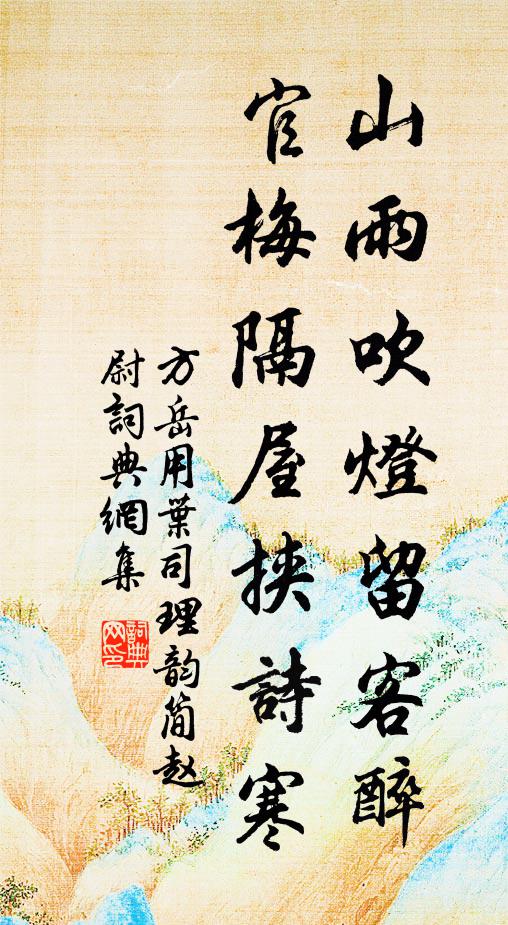 山雨吹燈留客醉
官梅隔屋挾詩寒
方岳用葉司理韵简赵
尉詞典網集
詞典网印